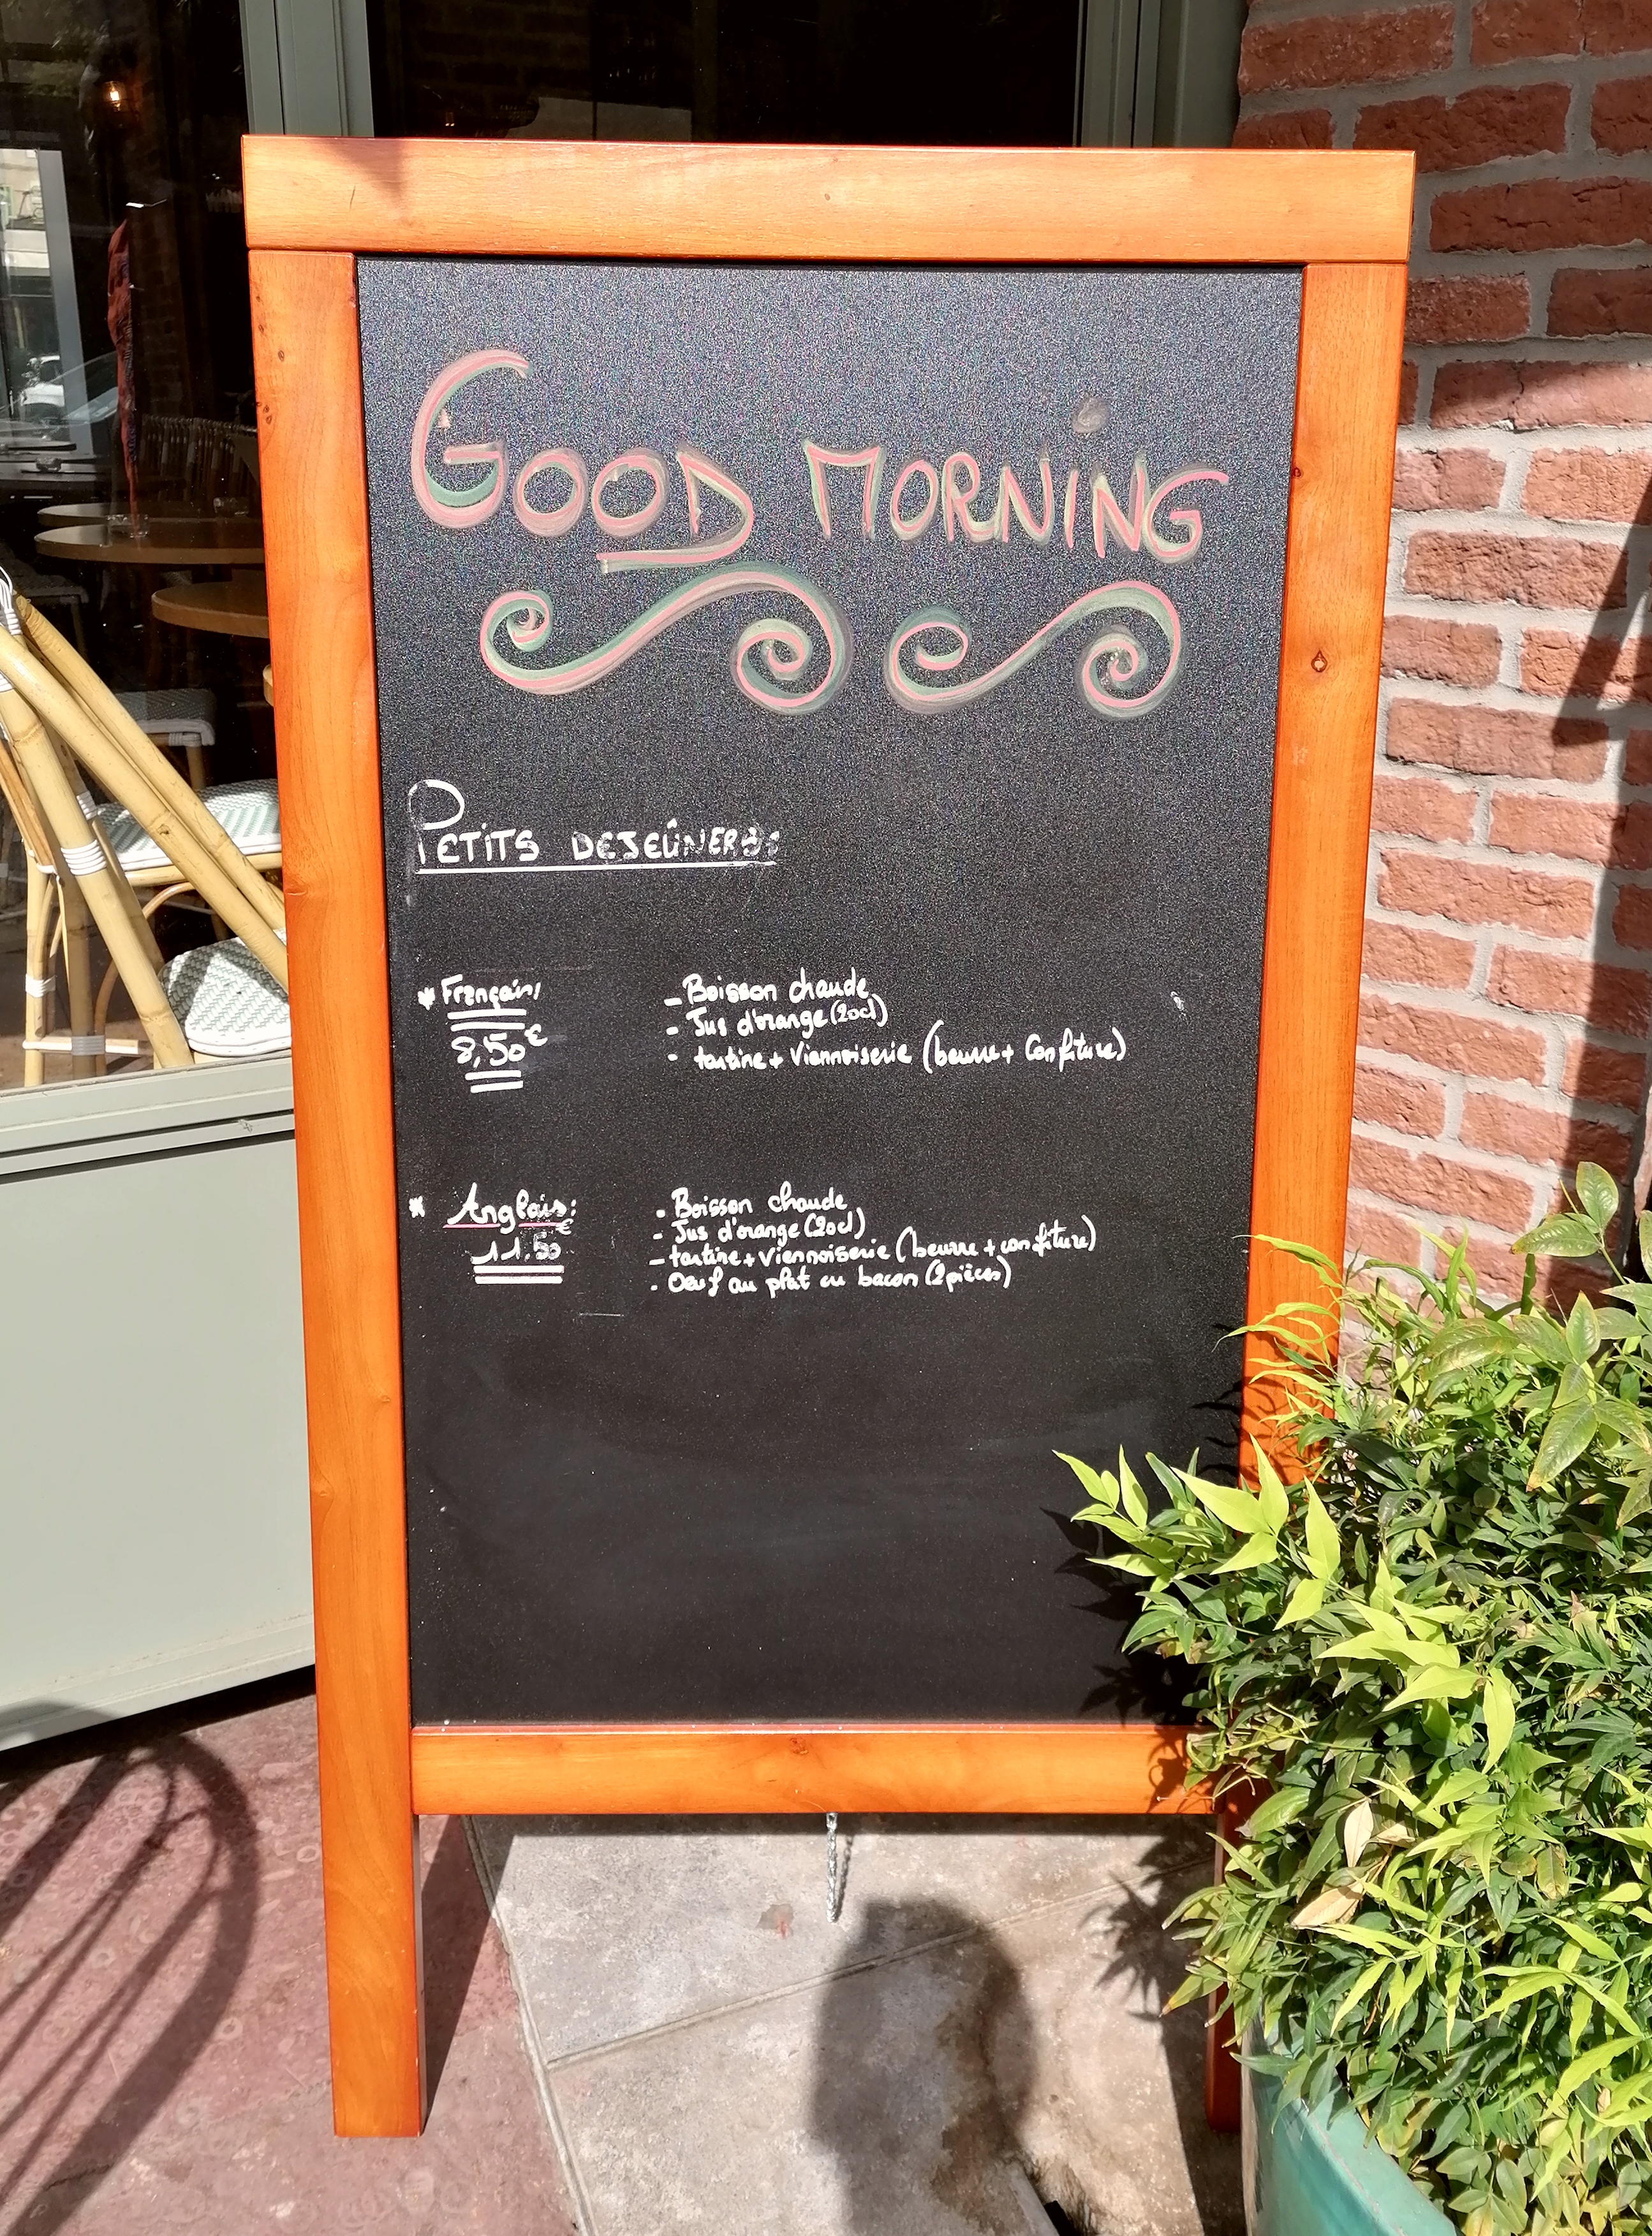 GOOD MORNING
PETITS DEJEÛNERS
* Français,
8,50€
- Boisson chaude
- Jus d'orange (20cl)
- tartine + Viennoiserie (beurre + Confiture)
* Anglais:
11.50€
- Boisson chaude
- Jus d'orange (20cl)
- tartine + Viennoiserie (beurre + confiture)
- Oeuf au plat ou bacon (2pièces)